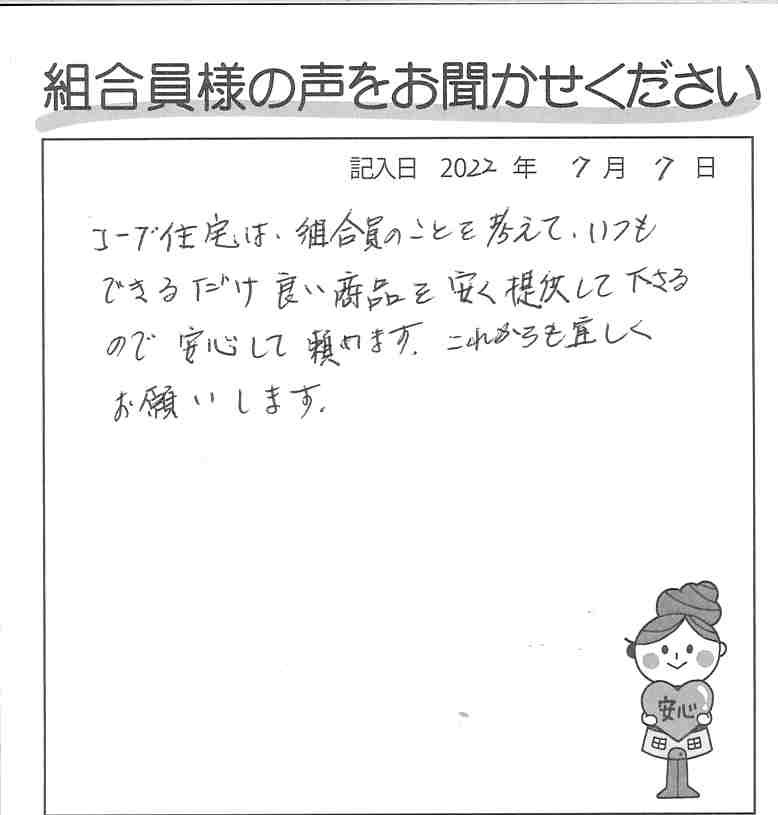 組合員様の声をお聞かせください
記入日 2022 年 7 月 7 日
コープ住宅は、組合員のことを考えて、いつも
できるだけ良い商品を安く提供して下さる
ので安心して頼めます。これからも宜しく
お願いします。
安心